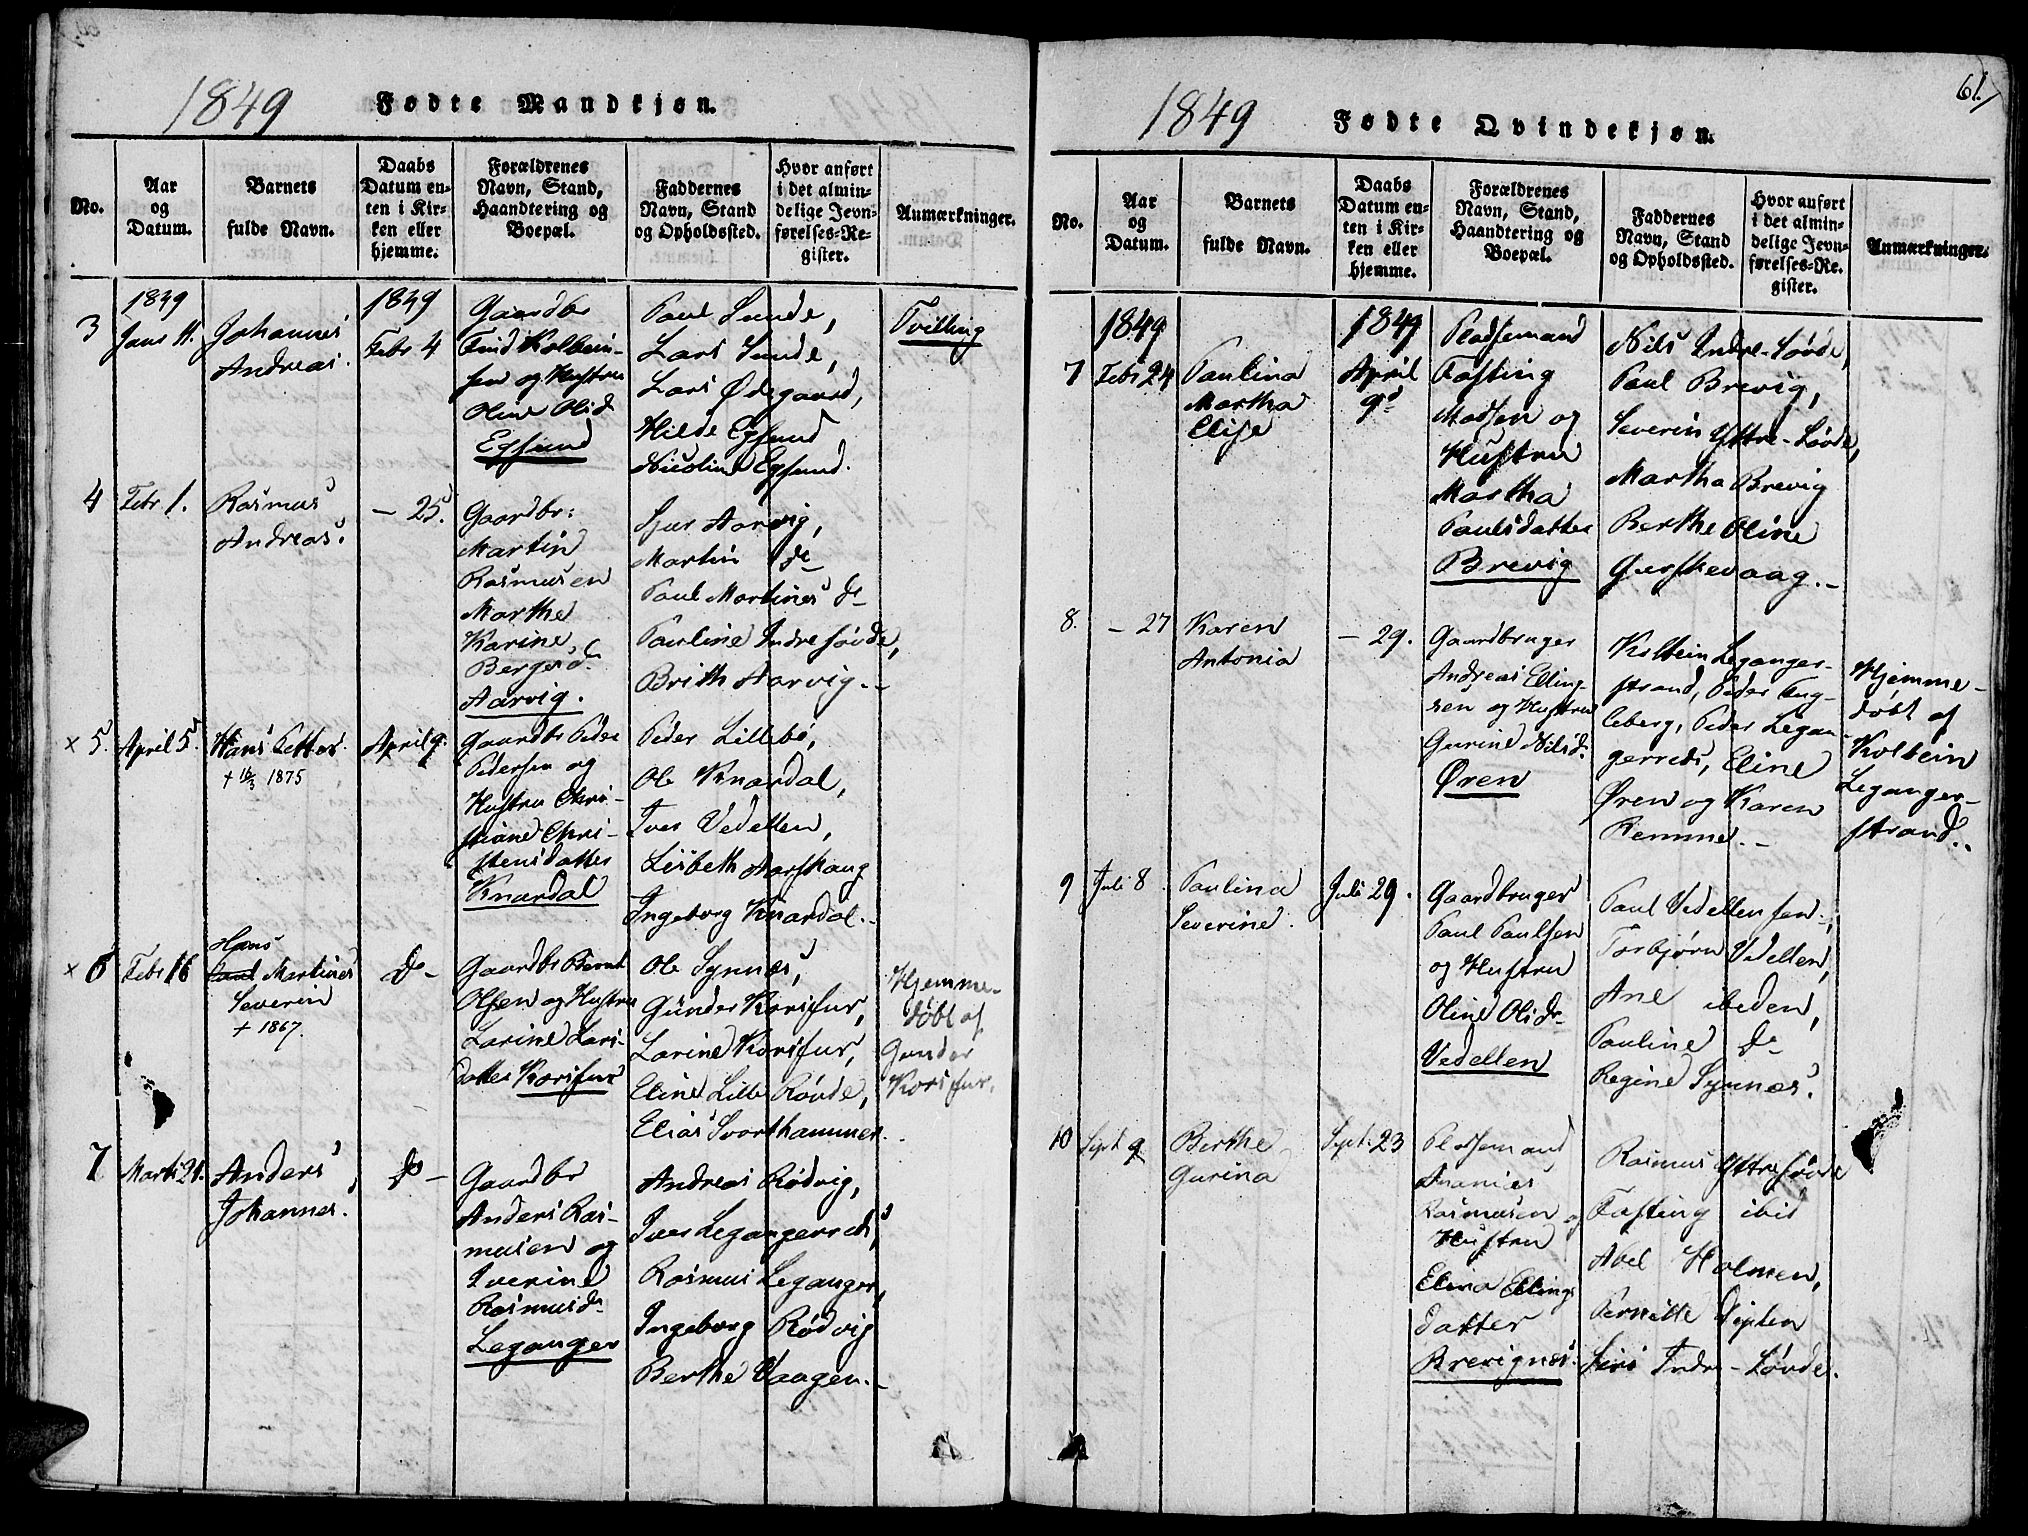 1849 Fødte Mandkjøn.
No.
Aar
og
Datum.
Barnets
fulde Navn.
Daabs
Datum en-
ten i Kir-
ken eller
hjemme.
Forældrenes
Navn, Stand,
Haandtering og
Boepæl.
Faddernes
Navn, Stand
og Opholdssted.
Hvor anført
i det almin-
delige Jevn-
førelses-Re-
gister.
Anmærkninger.
3
1849
Janr 11.
Johannes
Andreas.
1849
Febr 4
Gaardbr
Knud Kolbein-
sen og Hustru
Oline Olsd
Egsund
Paul Sunde,
Lars Sunde,
Lars Ødegaard,
Hilde Egsund
Nicoline Egsund.
Tvilling
4
Febr 1.
Rasmus
Andreas.
- 25.
Gaardbr:
Martin
Rasmusen
Marthe
Karine
Bergesd.
Aarvig.
Sjur Aarvig,
Martin do
Paul Martines do
Pauline Indre søvde,
Brith Aarvig.-
x 5.
April 5.
Hans Petter.
+ 16/3 1875
April 9.
Gaardbr Peder
Pedersen og
Hustru Chri-
stiane Chri-
stensdatter
Knardal
Peder Lillebø,
Ole Knardal,
Iver Vedellen,
Lisbeth Aarskaug
Ingeborg Knardal.-
x 6
Febr 16
Hans
Paul Martines
Severin
+ 1867.
do-
Gaardbr Bernt
Olsen og Hustru
Larine Lars-
datter Korsfur
Ole Synnæs,
Gunder Korsfur,
Larine Korsfur,
Eline Lille Røvde,
Elias Svorthammer.
Hjemme-
døbt af
Gunder
Korsfur.
7
Marts 24.
Anders
Johannes.
do-
Gaardbr
Anders Ras-
musen og
Iverine
Rasmusd-
Leganger
Andreas Rødvig,
Iver Legangereds,
Rasmus Leganger,
Ingeborg Rødvig
Berthe Vaagen.-
61.
1849 Fødte Qvindekjøn.
No.
Aar
og
Datum.
Barnets
fulde Navn.
Daabs
Datum en-
ten i Kir-
ken eller
hjemme.
Forældrenes
Navn, Stand,
Haandtering og
Boepæl.
Faddernes
Navn, Stand
og Opholdssted.
Hvor anført
i det almin-
delige Jevn-
førelses-Re-
gister.
Anmærkninger.
7
1849
Febr 24
Paulina
Martha
Elise
1849
April
9d
Pladsemand
Fasting
Madsen og
Hustru
Martha
Paulsdatter
Brevig
Nils Indre-Søvde,
Paul Brevig,
Severin Yttre-Søvde,
Martha Brevig
Berthe Oline
Gurskevaag.-
8.
- 27
Karen
Antonia
- 29.
Gaardbruger
Andreas Elling-
sen og Hustru
Gurine Nilsd.
Øren
Kolbein Leganger-
strand, Peder Eng-
leberg, Peder Legan-
gerreds, Eline
Øren og Karen
Remme.-
Hjemme-
døbt af
Kolbein
Leganger-
strand.
9
Juli 8.
Paulina
Severine.
Juli 29.
Gaardbruger
Paul Paulsen
og Hustru
Oline Olsdr
Vedellen
Paul Vedellen sen.,
Torbjørn Vedellen,
Ane ibeden,
Pauline do
Regine Synnæs.
10
Sept 9
Berthe
Gurina
Sept. 23
Pladsemand
Ananias
Rasmusen og
Hustru
Elina Ellings
datter
Brevignes.
Rasmus Yttresøvde
Fasting ibid
Abel Holmen,
Pernille
Siri Indre-Søvde.